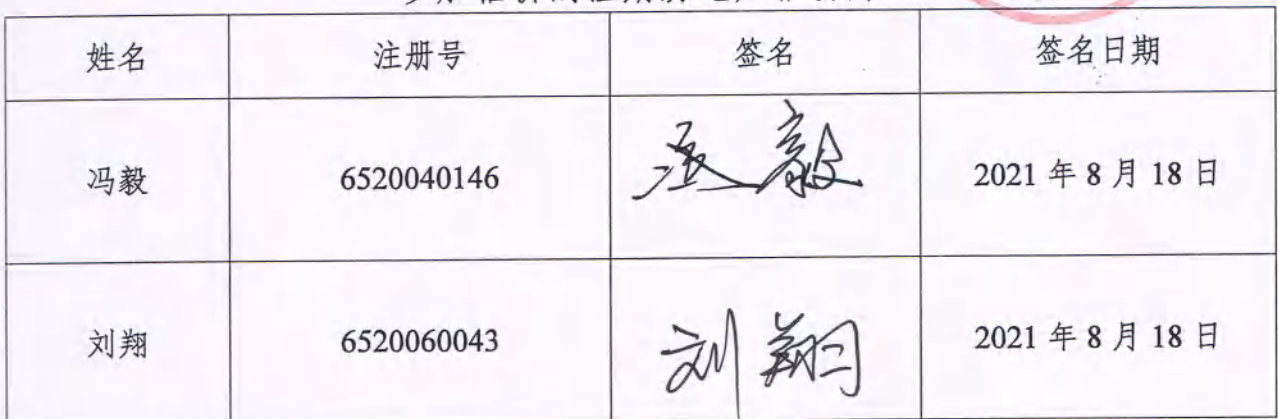 姓名 注册号 签名 签名日期
冯毅 6520040146 冯毅 2021年8月18日
刘翔 6520060043 刘翔 2021年8月18日